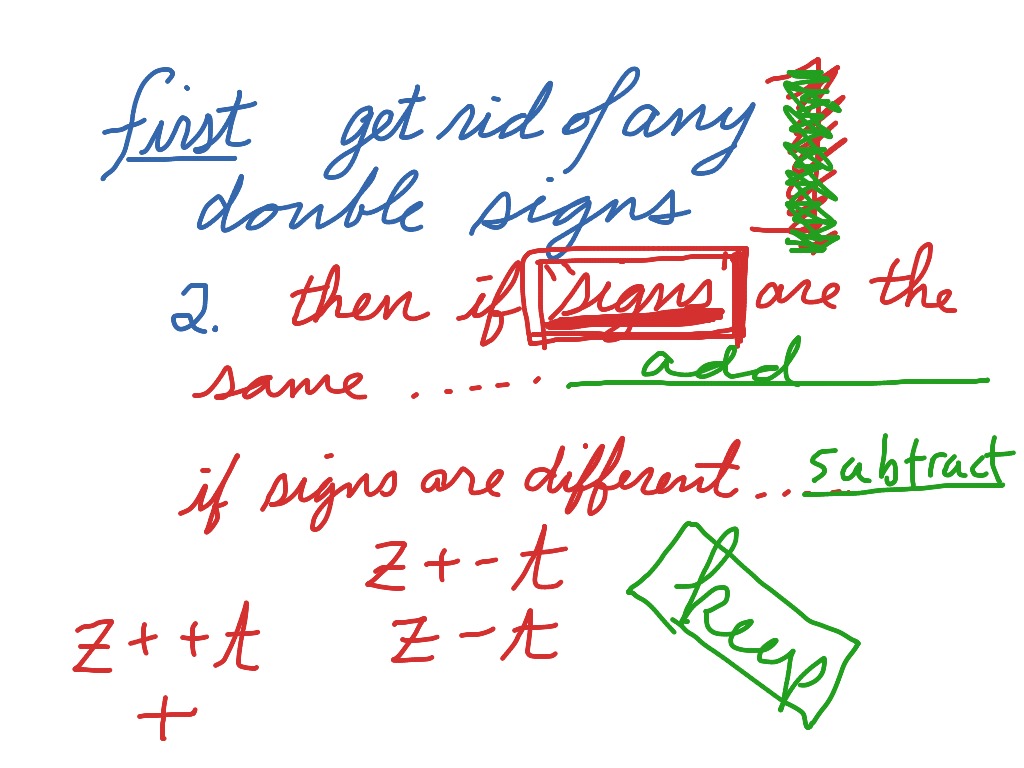 first get rid of any
double signs
2. then if "signs" are the
same ...... add
if signs are different ... subtract
z + - t
z + + t
z - t
+
keep